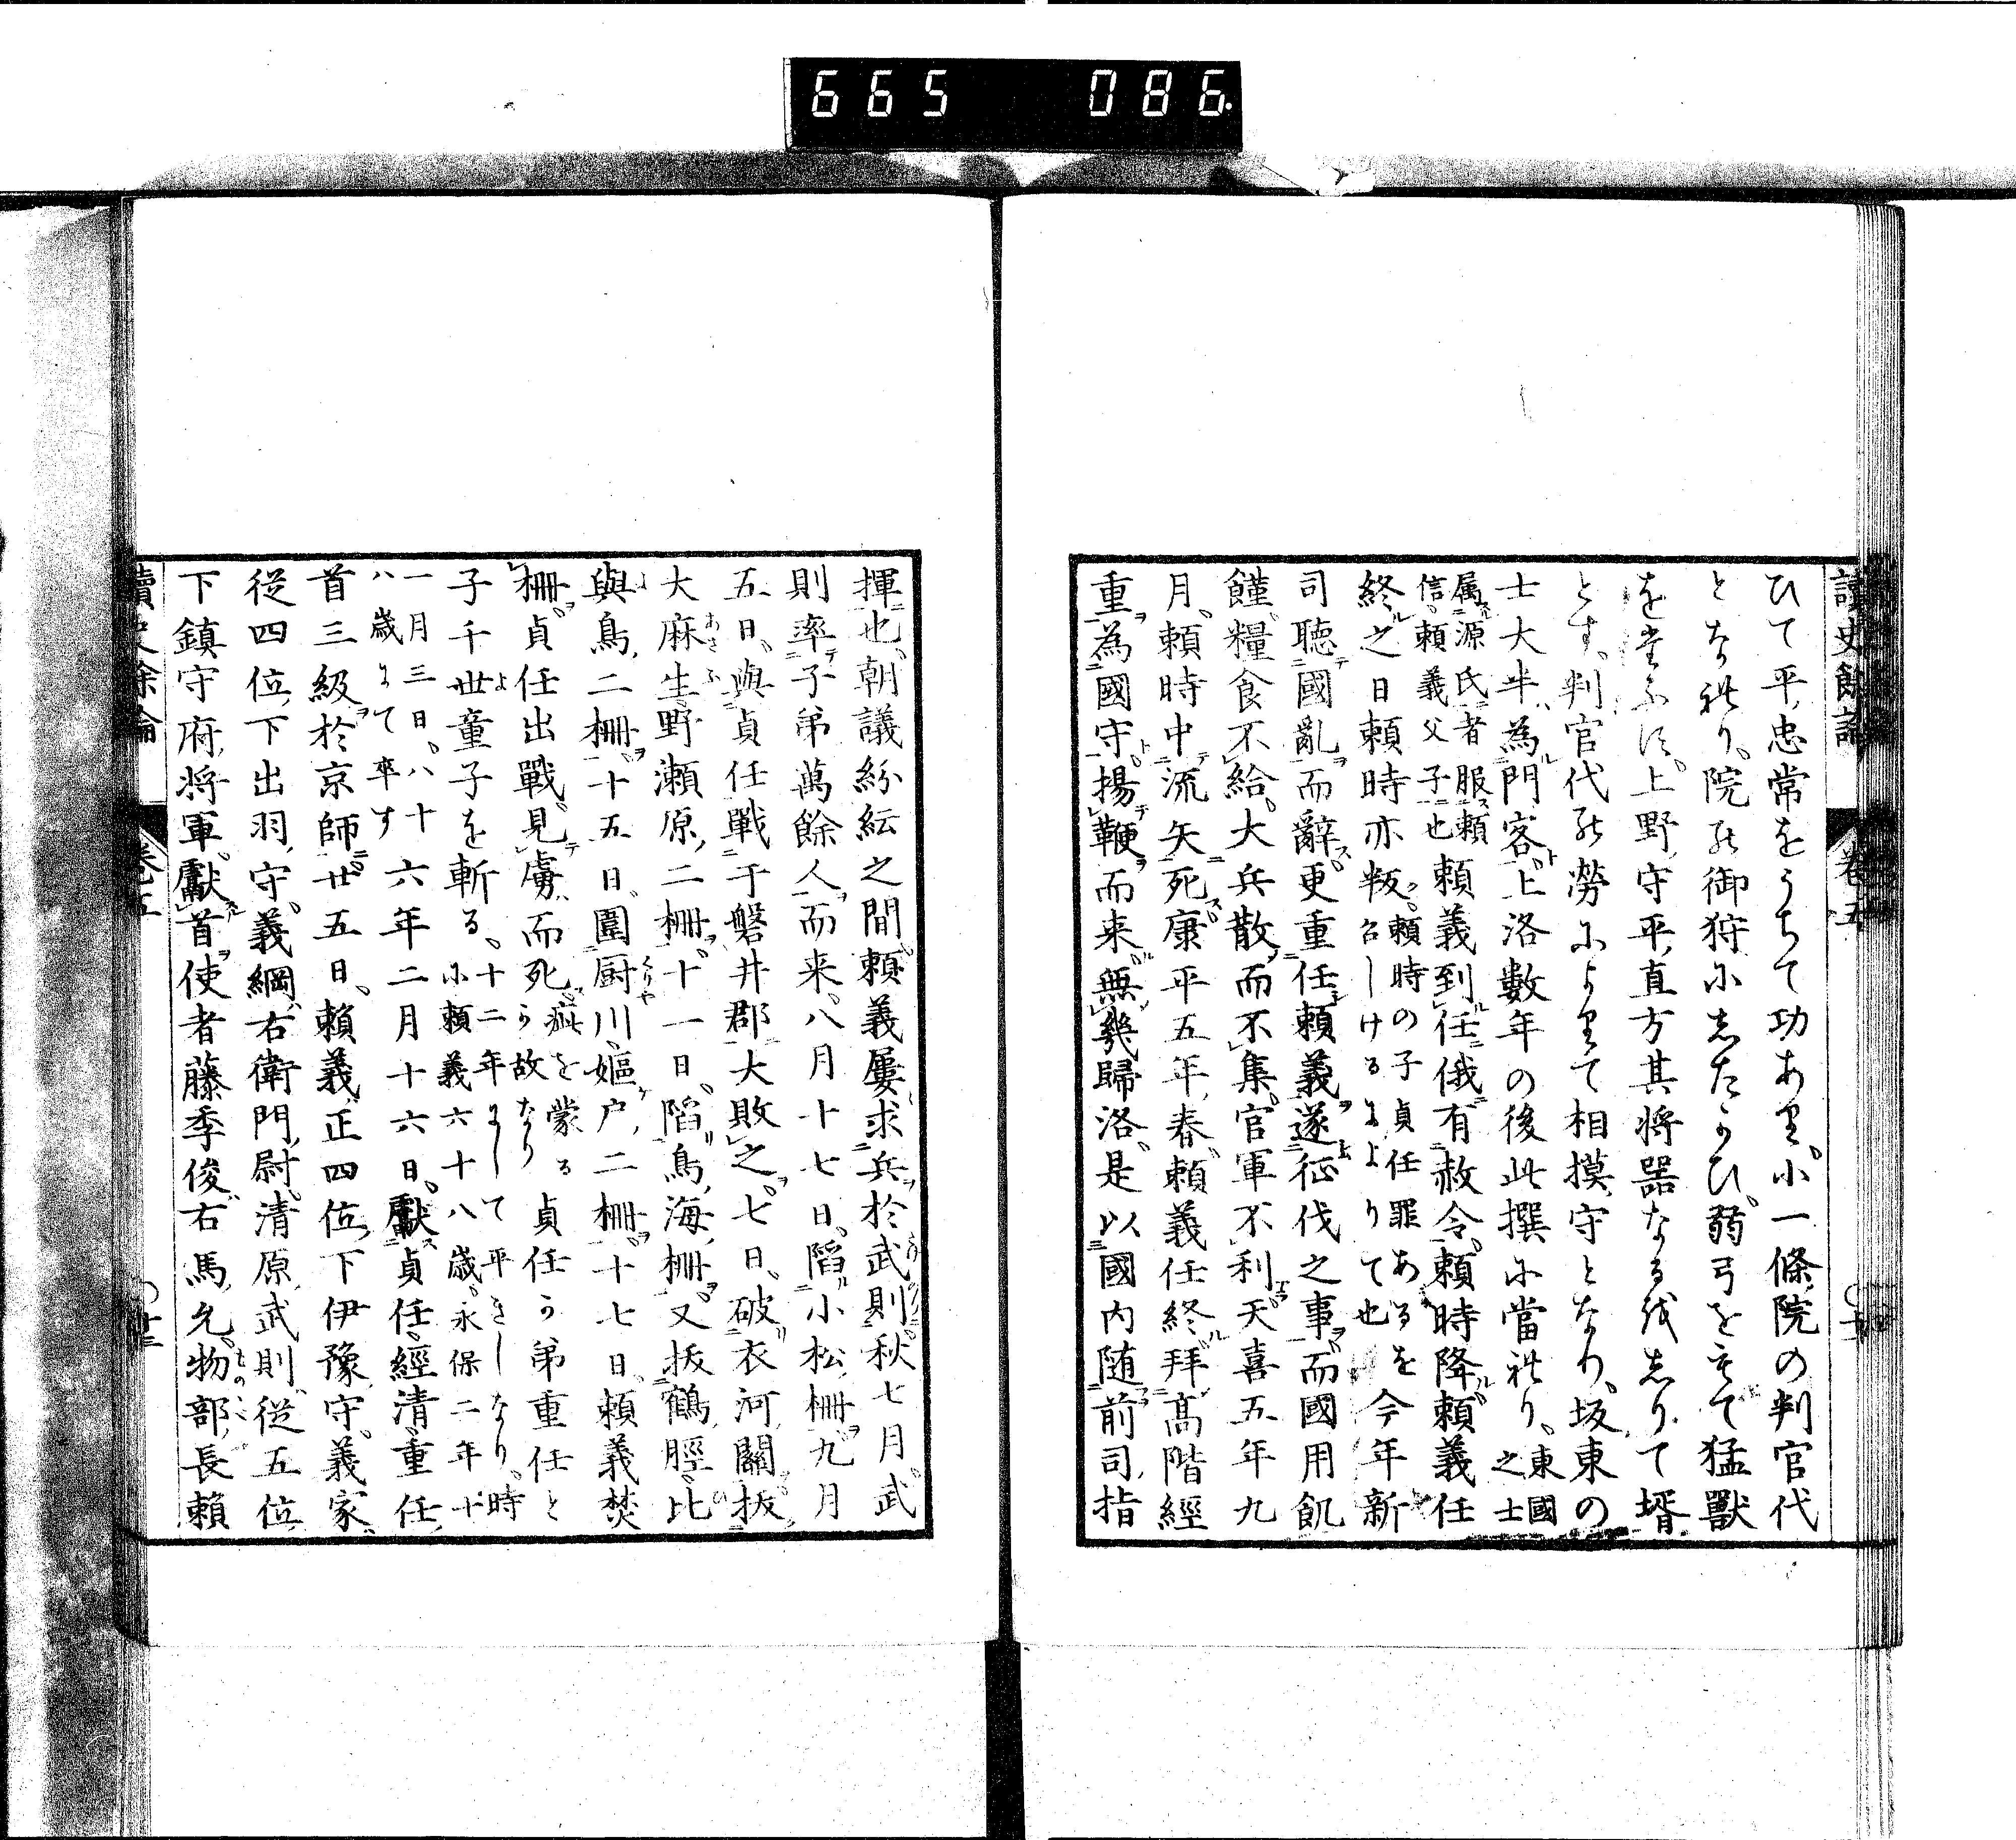 665 086
讀史餘論 卷五
ひて平忠常をうちて功あり小一條院の判官代
となれり院の御狩にしたかひ弱弓をもて猛獸
をたふす上野守平直方其将器なるをしりて壻
とす判官代の勞によりて相摸守となり坂東の
士大半為門客上洛數年の後此撰に當れり東國
之士
属源氏者服頼
信頼義父子也頼義到任俄有赦令頼時降頼義任
終之日頼時亦叛頼時の子貞任罪あるを
召しけるによりて也今年新
司聴國亂而辭更重任頼義遂征伐之事而國用飢
饉糧食不給大兵散而不集官軍不利天喜五年九
月頼時中流矢死康平五年春頼義任終拜髙階經
重為國守揚鞭而来無幾歸洛是以國内随前司指
揮也朝議紛紜之間頼義屢求兵於武則秋七月武
則率子弟萬餘人而来八月十七日䧟小松柵九月
五日與貞任戰于磐井郡大敗之七日破衣河關抜
大麻生野瀬原二柵十一日䧟鳥海柵又抜鶴脛比
與鳥二柵十五日圍厨川嫗戸二柵十七日頼義焚
柵貞任出戰見虜而死疵を蒙る
か故なり貞任か弟重任と
子千世童子を斬る十二年にして平きしなり時
に頼義六十八歳永保二年十
一月三日八十
八歳にて卒す六年二月十六日獻貞任經清重任
首三級於京師廿五日頼義正四位下伊豫守義家
従四位下出羽守義綱右衛門尉清原武則従五位
下鎮守府将軍獻首使者藤季俊右馬允物部長頼
讀史餘論 卷五